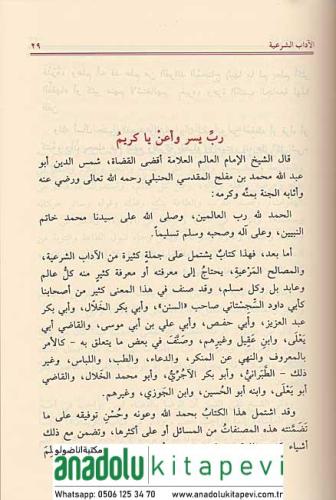 الآداب الشرعية
٢٩
ربِّ يسر وأعنْ يا كريمُ
قال الشيخ الإمام العالم العلامة أقضى القضاة، شمس الدين أبو
عبد الله محمد بن مفلح المقدسي الحنبلي رحمه الله تعالى ورضي عنه
وأثابه الجنة بمنِّه وكرمه:
الحمد لله رب العالمين، وصلى الله على سيدنا محمد خاتم
النبيين، وعلى آله وصحبه وسلم تسليماً.
أما بعد، فهذا كتابٌ يشتمل على جملةٍ كثيرة من الآداب الشرعية،
والمصالح المَرْعية، يحتاجُ إلى معرفته أو معرفة كثيرٍ منه كلُّ عالم
وعابد بل وكل مسلم، وقد صنف في هذا المعنى كثير من أصحابنا
كأبي داود السِّجستاني صاحب «السنن»، وأبي بكر الخلال، وأبي بكر
عبد العزيز، وأبي حفص، وأبي علي بن أبي موسى، والقاضي أبي
يَعْلَى، وابنِ عَقِيل وغيرهم، وصنَّفَ في بعض ما يتعلق به - كالأمر
بالمعروف والنهي عن المنكر، والدعاء، والطب، واللباس، وغير
ذلك - الطَّبَرانيُّ، وأبو بكر الآجُرِّيُّ، وأبو محمد الخلال، والقاضي
أبو يَعْلَى، وابنه أبو الحُسين، وابن الجَوزي، وغيرهم.
وقد اشتمل هذا الكتابُ بحمد الله وعونه وحُسْنِ توفيقه على ما
تَضَمَّنته هذه المصنفاتُ من المسائل أو على أكثرها، وتضمن مع ذلك
أشياء
مكتبة اناضولو
anadolukitapevi
Whatsapp: 0506 125 34 70 www.anadolukitapevi.com